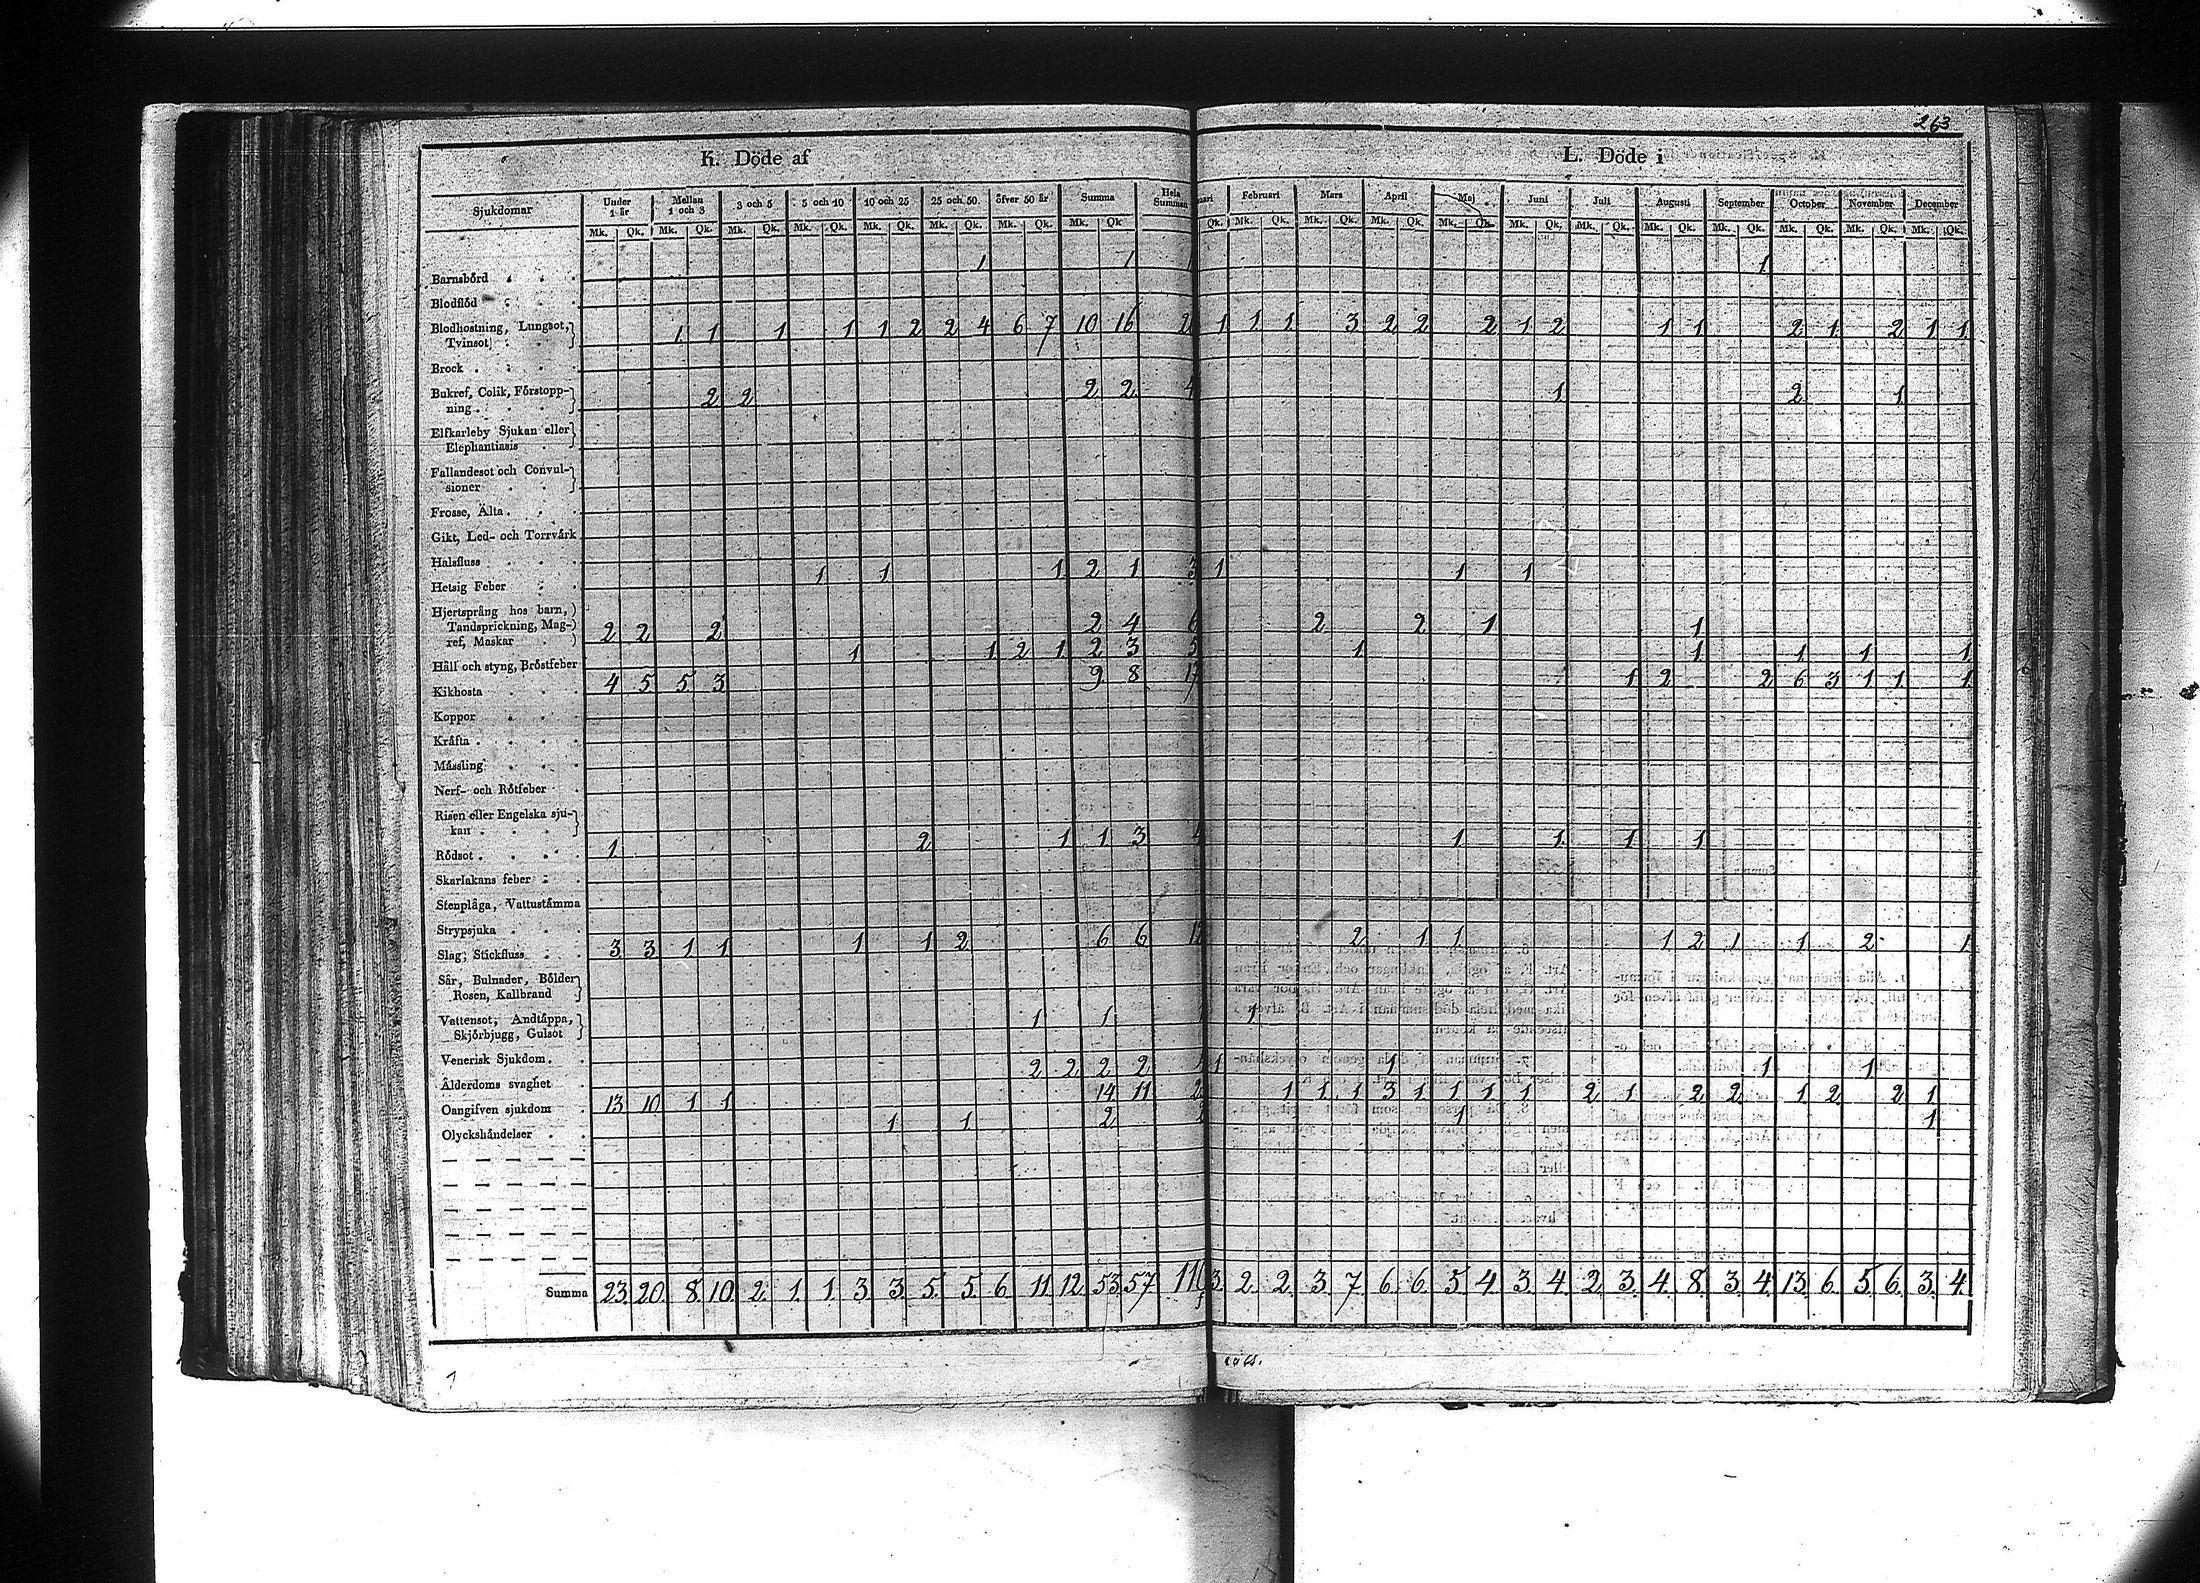 263
K. Döde af L. Döde i
Sjukdomar Under 1 år Mellan 1 och 3 3 och 5 5 och 10 10 och 25 25 och 50 öfver 50 år Summa Hela Summan Februari Mars April Maj Juni Juli Augusti September October November December
Mk. Qk. Mk. Qk. Mk. Qk. Mk. Qk. Mk. Qk. Mk. Qk. Mk. Qk. Mk. Qk Qk. Mk. Qk. Mk. Qk. Mk. Qk. Mk. Qk. Mk. Qk. Mk. Qk. Mk. Qk. Mk. Qk. Mk. Qk. Mk. Qk. Mk. Qk.
Barnsbörd 1 1 1
Blodflöd
Blodhostning, Lungsot, 1 1 1 1 1 2 2 4 6 7 10 16 1 1 1 3 2 2 2 1 2 1 1 2 1 2 1 1
Tvinsot
Brock
Bukref, Colik, Förstopp- 2 2 2 2 4 1 2 1
ning
Elfkarleby Sjukan eller
Elephantiasis
Fallandesot och Convul-
sioner
Frosse, Älta
Gikt, Led- och Torrvärk
Halsfluss
Hetsig Feber 1 1 1 2 1 3 1 1 1
Hjertsprång hos barn,
Tandsprickning, Mag- 2 2 2 2 4 6 2 2 1 1
ref, Maskar
Håll och styng, Bröstfeber 1 1 2 1 2 3 5 1 1 1 1 1
Kikhosta 4 5 5 3 9 8 17 1 2 2 6 3 1 1 1
Koppor
Kräfta
Mässling
Nerf- och Rötfeber
Risen eller Engelska sju-
kan
Rödsot 1 2 1 1 3 4 1 1 1 1
Skarlakans feber
Stenplåga, Vattustämma
Strypsjuka
Slag, Stickfluss 3 3 1 1 1 1 2 6 6 12 2 1 1 1 2 1 1 2 1
Sår, Bulnader, Bölder
Rosen, Kallbrand
Vattensot, Andtäppa, 1 1 1
Skjörbjugg, Gulsot
Venerisk Sjukdom
Ålderdoms svaghet 2 2 2 2 4 1 1 1 1
Oangifven sjukdom 13 10 1 1 14 11 1 1 1 3 1 1 1 1 2 1 2 2 1 2 2 1
Olyckshändelser 1 1 2 1 1
Summa 23 20 8 10 2 1 1 3 3 5 5 6 11 12 53 57 110 3 2 2 3 7 6 6 5 4 3 4 2 3 4 8 3 4 13 6 5 6 3 4